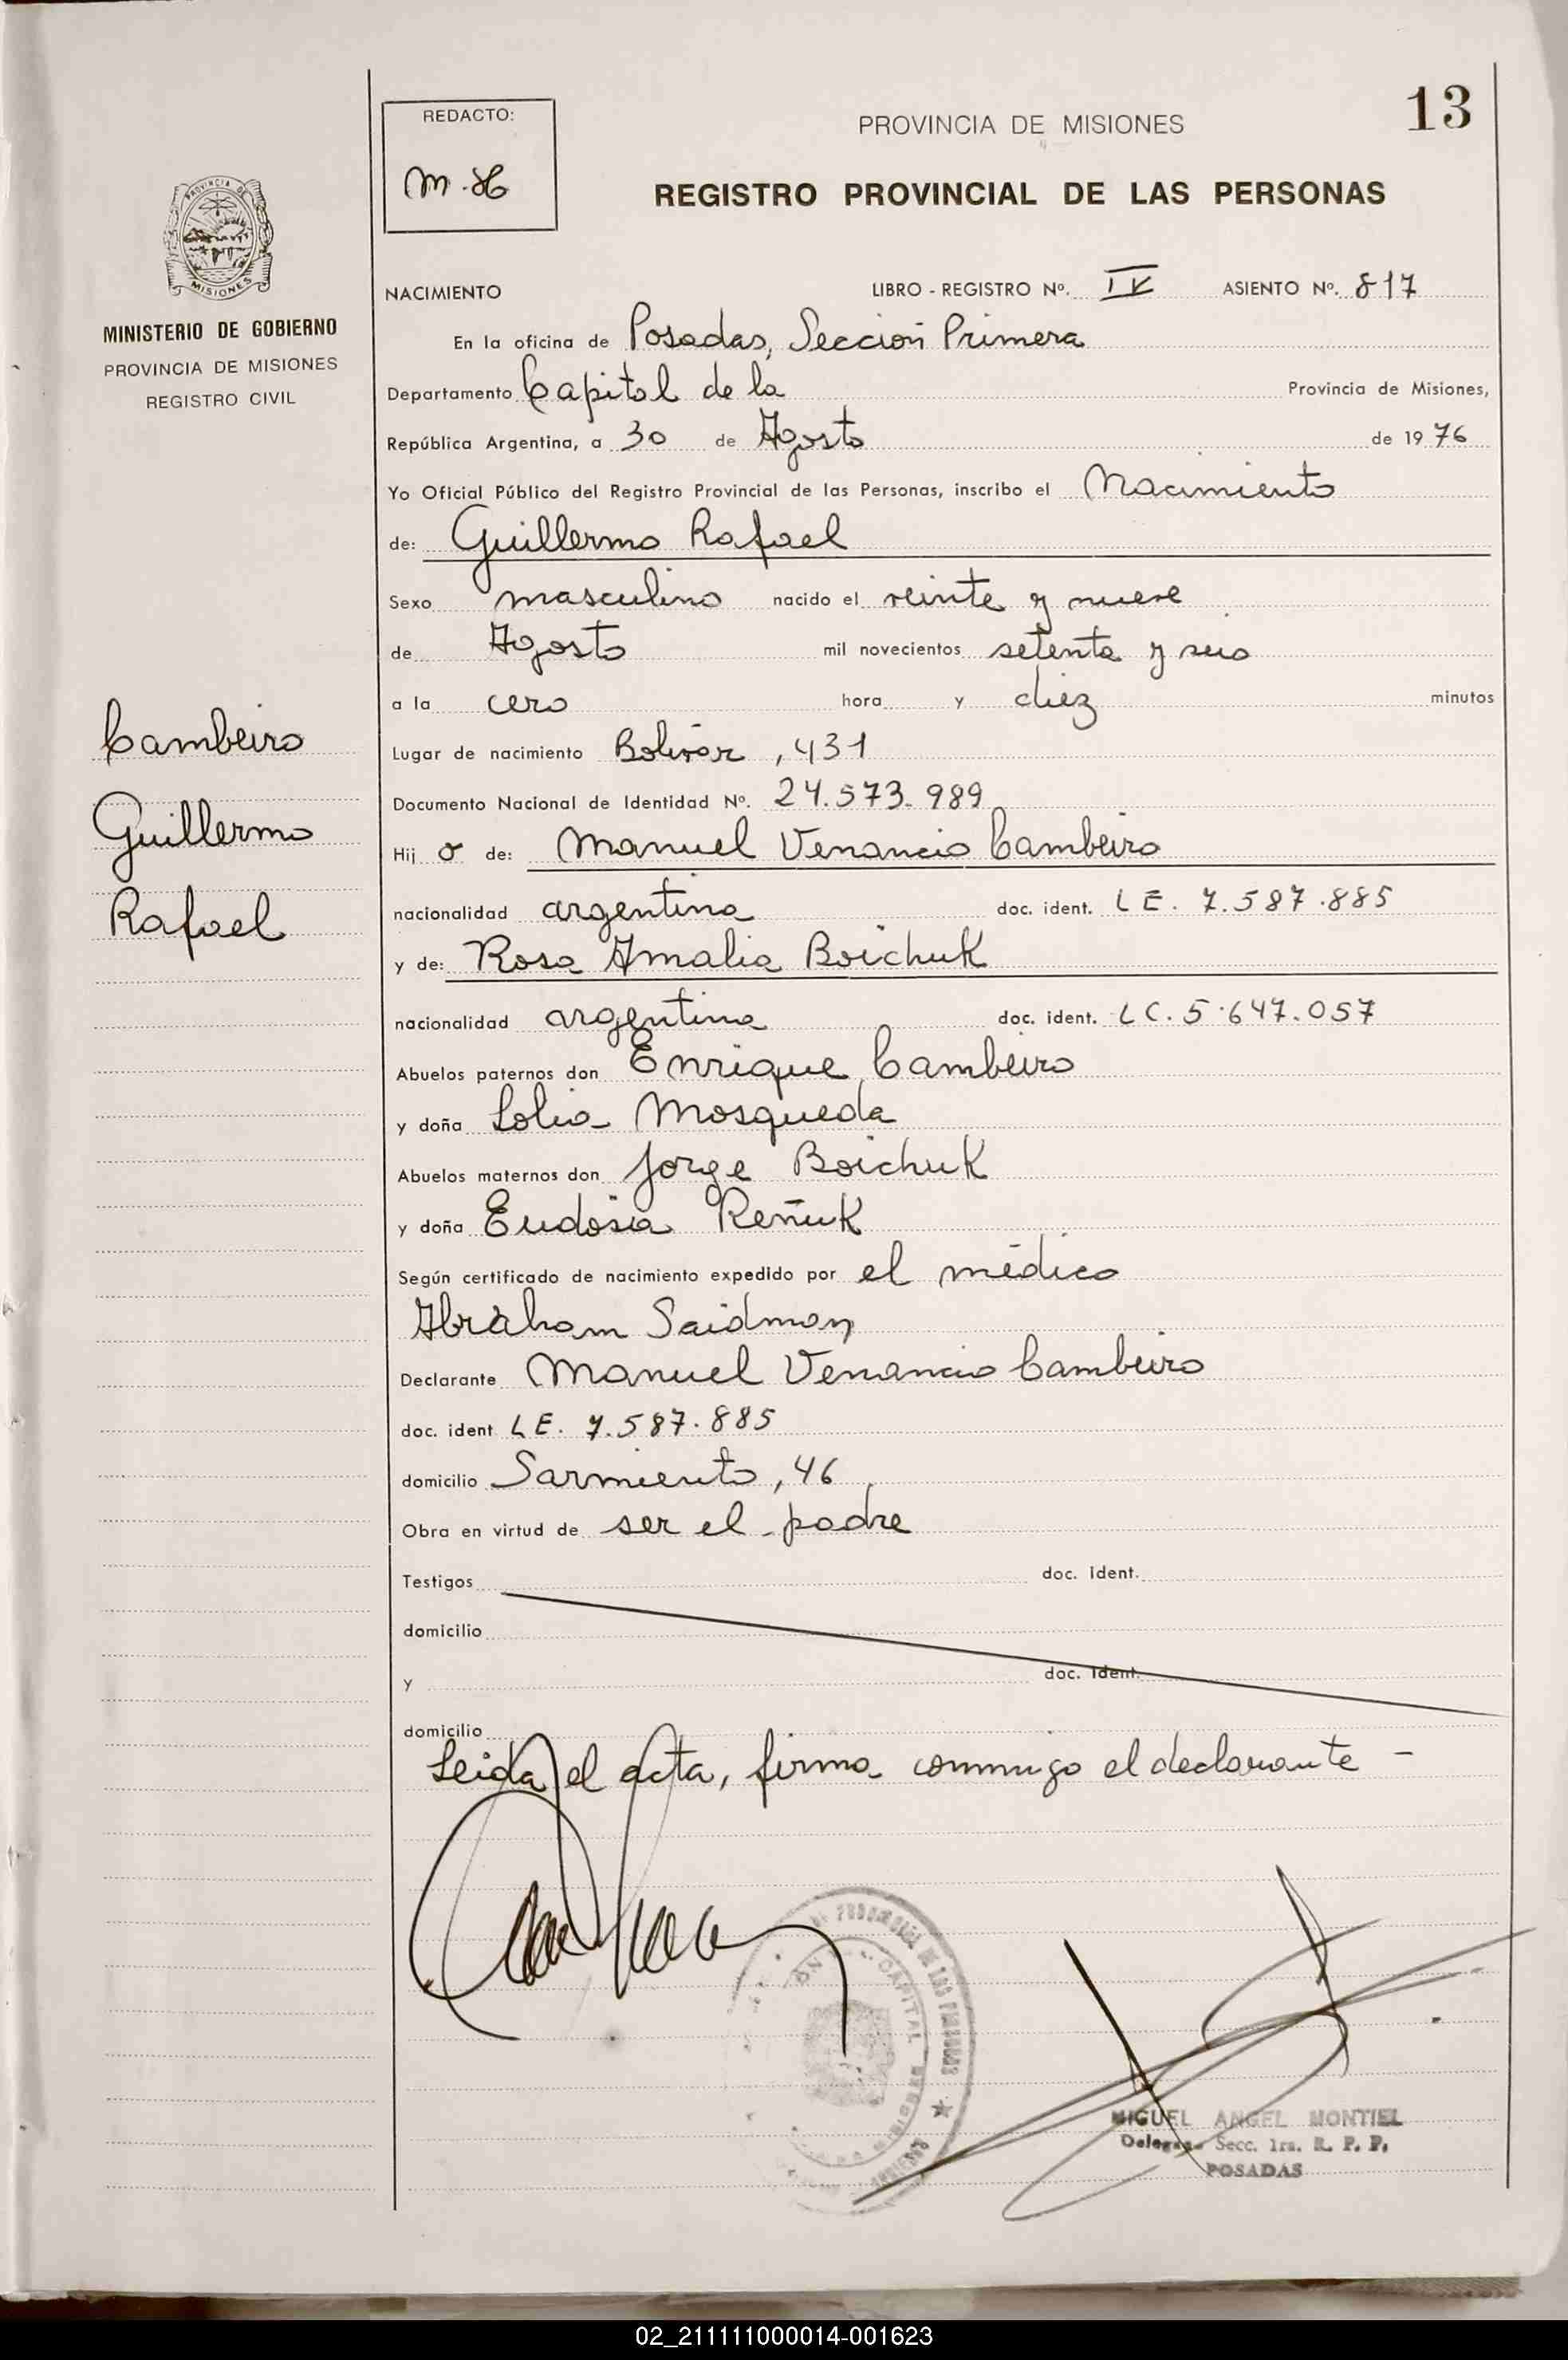 13
REDACTO:
PROVINCIA DE MISIONES
REGISTRO PROVINCIAL DE LAS PERSONAS
PROVINCIA DE
MISIONES
MINISTERIO DE GOBIERNO
PROVINCIA DE MISIONES
REGISTRO CIVIL
NACIMIENTO LIBRO - REGISTRO Nº. IV ASIENTO Nº. 817
En la oficina de Posadas, Sección Primera
Departamento Capital de la Provincia de Misiones,
República Argentina, a 30 de Agosto de 1976
Yo Oficial Público del Registro Provincial de las Personas, inscribo el Nacimiento
de: Guillermo Rafael
Sexo masculino nacido el veinte y nueve
de Agosto mil novecientos setenta y seis
a la cero hora y diez minutos
Cambeiro
Guillermo
Rafael
Lugar de nacimiento Bolívar, 431
Documento Nacional de Identidad Nº. 24.573.989
Hij o de: Manuel Venancio Cambeiro
nacionalidad argentina doc. ident. LE. 7.587.885
y de: Rosa Amalia Boichuk
nacionalidad argentina doc. ident. LC. 5.647.057
Abuelos paternos don Enrique Cambeiro
y doña Mosqueda
Abuelos maternos don Jorge Boichuk
y doña Eudosia Reñuk
Según certificado de nacimiento expedido por el médico
Abraham Saidman
Declarante Manuel Venancio Cambeiro
doc. ident LE. 7.587.885
domicilio Sarmiento, 46
Obra en virtud de ser el padre
Testigos doc. ident.
domicilio
y doc. ident.
domicilio
Leida el acta, firma conmigo el declarante -
CAPITAL
MIGUEL ANGEL MONTIEL
Secc. 1ra. R. P. P.
POSADAS
02_211111000014-001623